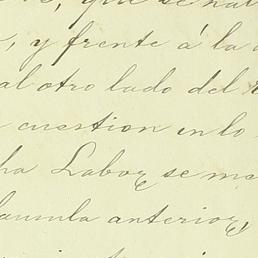 que se hal
, y frente á la
al otro lado del
cuestion en lo
ha Labor se ma
lausula anterior,